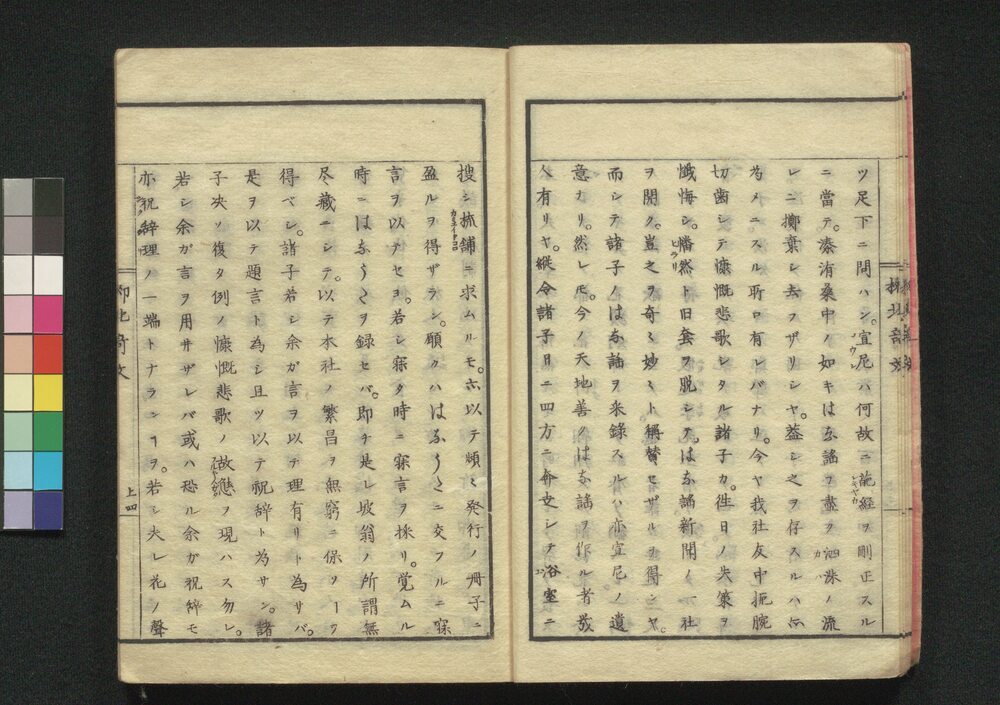 ツ足下ニ問ハン。宣尼ハ何故ニ詩経ヲ刪正スル
ニ當テ。溱洧桑中ノ如キはな謡ヲ盡ク泗洙ノ流
レニ擲棄シ去ラザリシヤ。蓋シ之ヲ存スルハ
為メニスル所ロ有レバナリ。今ヤ我社友中扼腕
切歯シテ慷慨悲歌シタル諸子カ。徃日ノ失策ヲ
懺悔シ。幡然ト旧套ヲ脱シテ。はな謡新聞ノ一社
ヲ開ク。豈之ヲ奇〻妙〻ト稱賛セザルヲ得ンヤ。
而シテ諸子ノはな謡ヲ采録スルハ亦宣尼ノ遺
意カリ。然レ𪜈。今ノ天地善クはな謡ヲ作ル者幾
人有リヤ。縦令諸子日ニ四方ニ奔走シテ浴室ニ
搜シ梳舗ニ求ムルモ。六以テ頻〻発行ノ冊子ニ
盈ルヲ得ザラン。願クハはなうたニ交フルニ寐
言ヲ以テセヨ。若シ寐タ時ニ寐言ヲ採リ。覚ムル
時ニはなうたヲ録セバ。即チ是レ坡翁ノ所謂無
尽藏ニシテ。以テ本社ノ繁昌ヲ無窮ニ保ツヿヲ
得ベシ。諸子若シ余が言ヲ以テ理有リト為サバ。
是ヲ以テ題言ト為シ且ツ以テ祝辞ト為サン。諸
子决ソ復タ例ノ慷慨悲歌ノ故態ヲ現ハス勿レ。
若シ余が言ヲ用井ザレバ或ハ恐ル余が祝辞モ
亦祝辞理ノ一端トナランヿヲ。若シ夫レ花ノ聲
上四